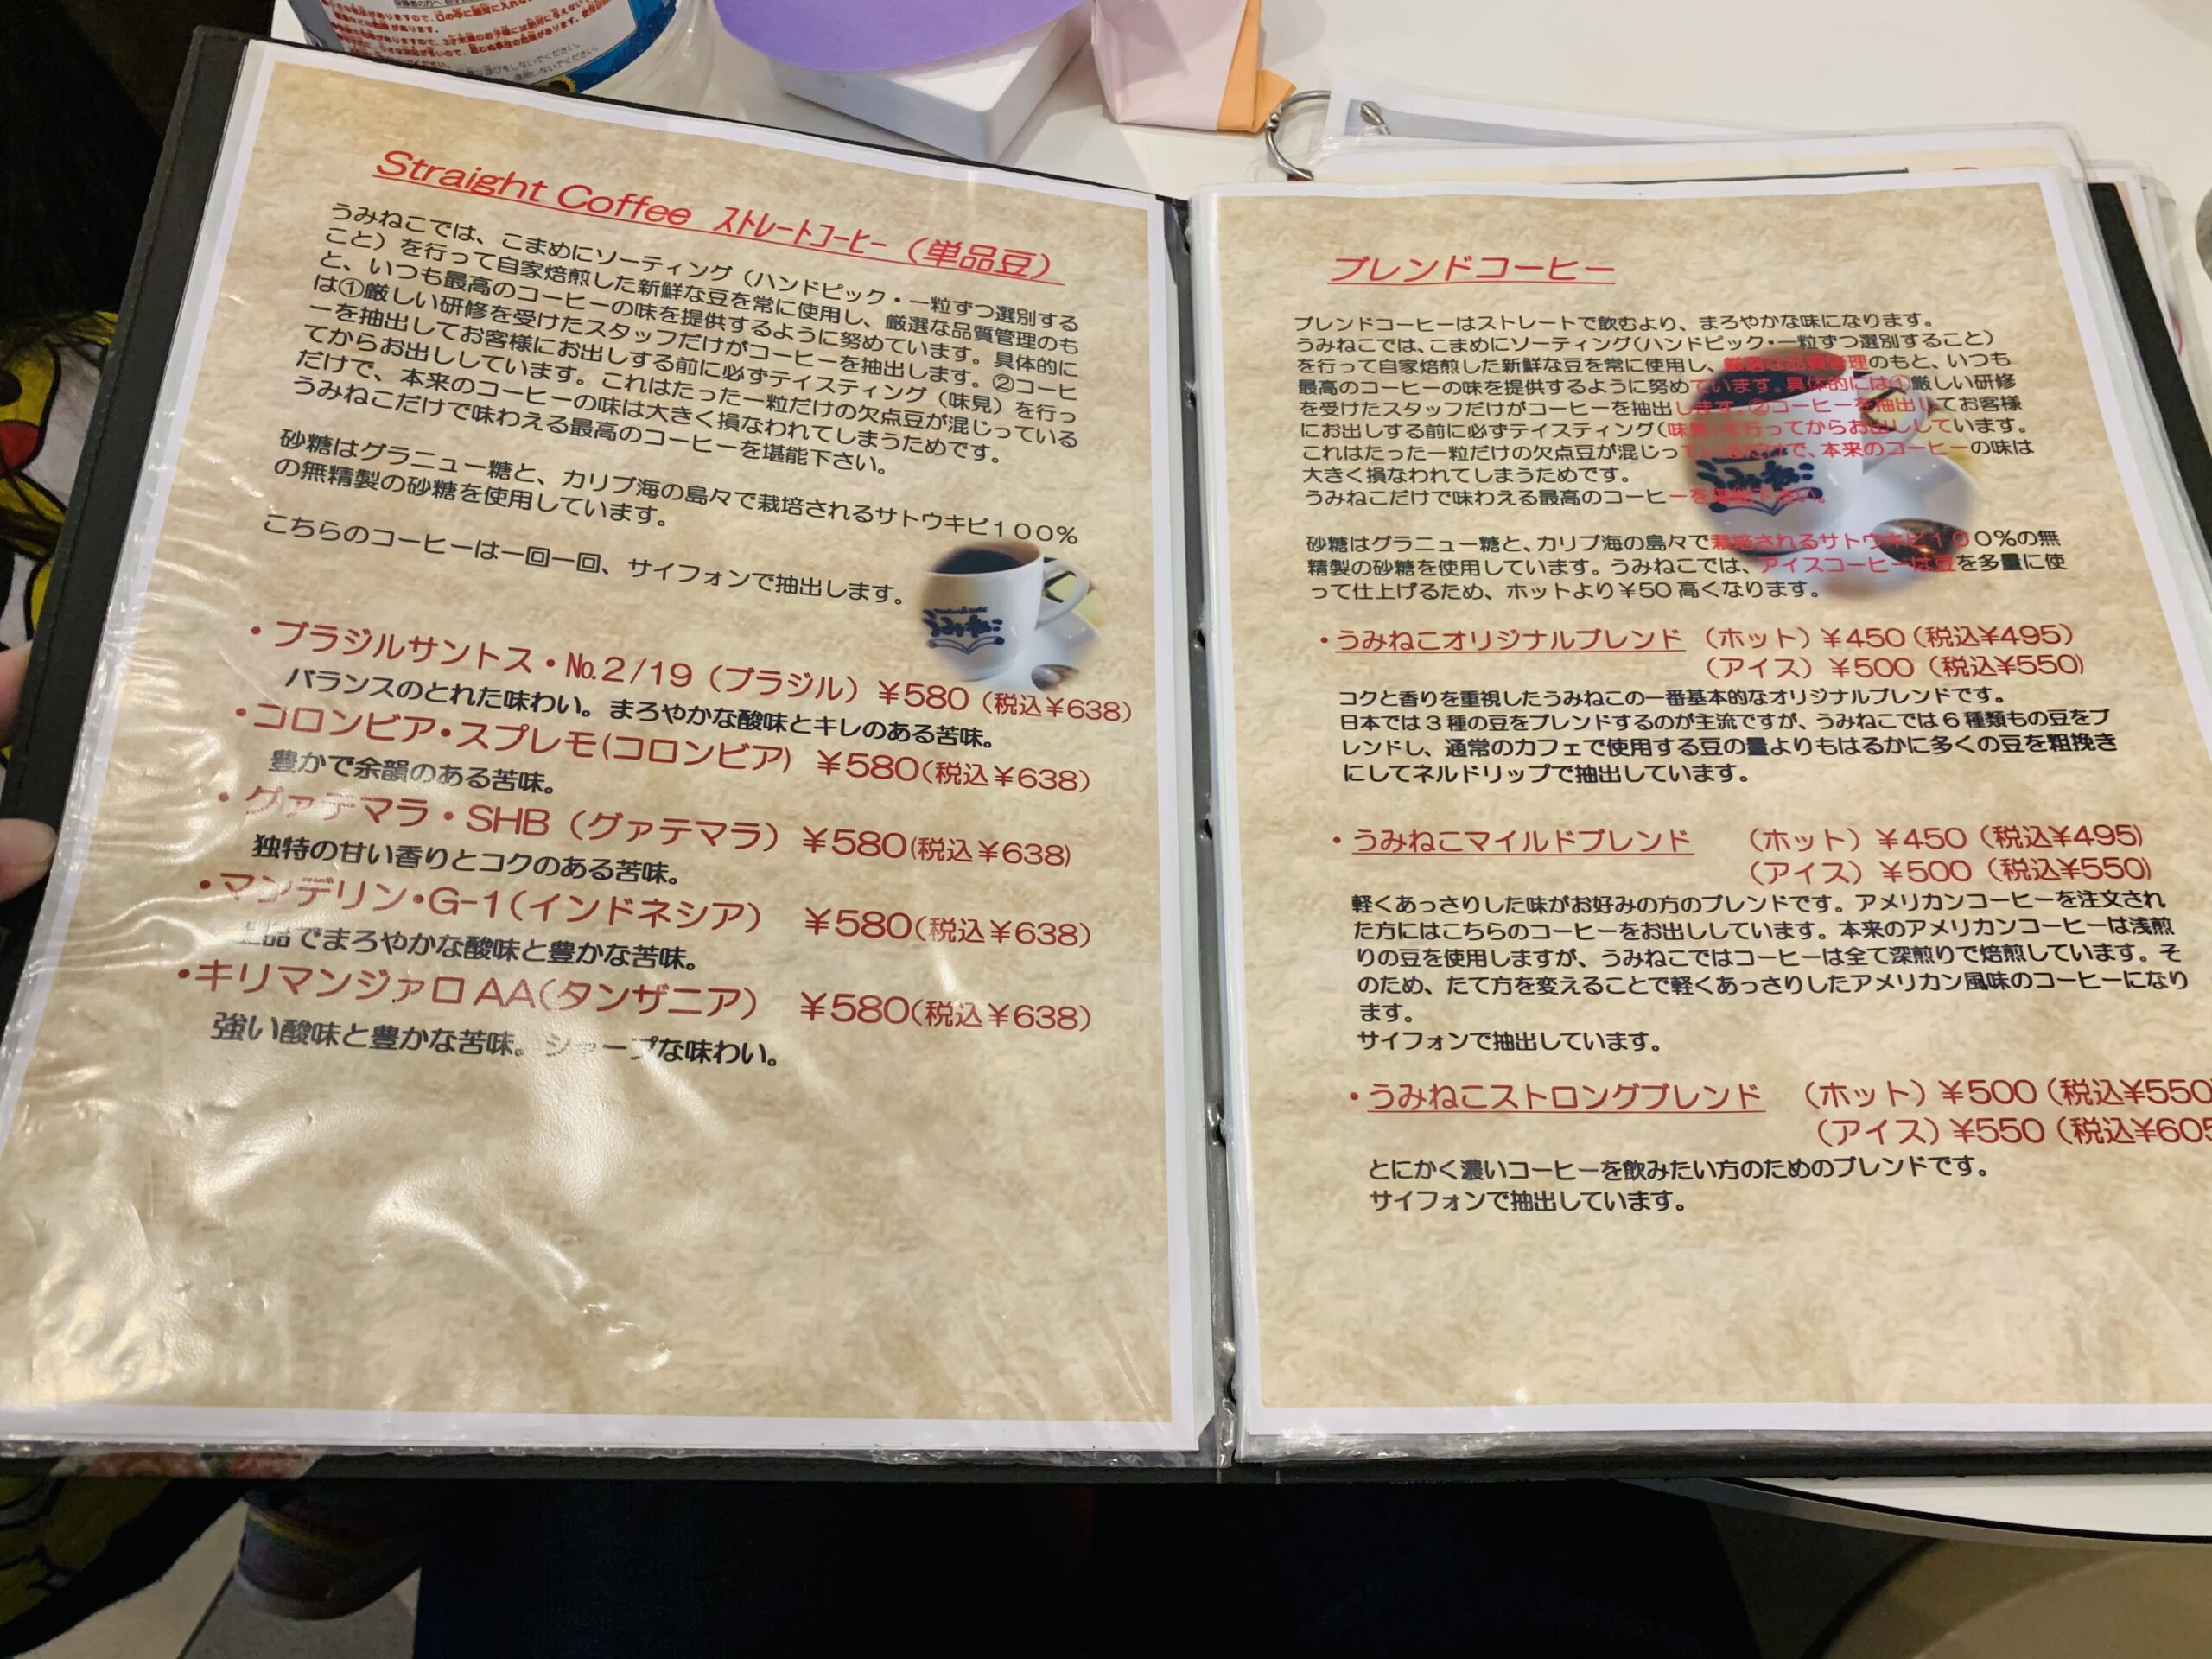 Straight Coffee ｽﾄﾚｰﾄｺｰﾋｰ（単品豆）
うみねこでは、こまめにソーティング（ハンドピック・一粒ずつ選別する
こと）を行って自家焙煎した新鮮な豆を常に使用し、厳選な品質管理のも
と、いつも最高のコーヒーの味を提供するように努めています。具体的に
は①厳しい研修を受けたスタッフだけがコーヒーを抽出します。②コーヒ
ーを抽出してお客様にお出しする前に必ずテイスティング（味見）を行っ
てからお出ししています。これはたった一粒だけの欠点豆が混じっている
だけで、本来のコーヒーの味は大きく損なわれてしまうためです。
うみねこだけで味わえる最高のコーヒーを堪能下さい。
砂糖はグラニュー糖と、カリブ海の島々で栽培されるサトウキビ１００％
の無精製の砂糖を使用しています。
こちらのコーヒーは一回一回、サイフォンで抽出します。
うみねこ
・ブラジルサントス・№2/19（ブラジル）￥580（税込￥638）
バランスのとれた味わい。まろやかな酸味とキレのある苦味。
・コロンビア・スプレモ(コロンビア) ￥580(税込￥638)
豊かで余韻のある苦味。
・グァテマラ・SHB（グァテマラ）￥580(税込￥638)
独特の甘い香りとコクのある苦味。
・マンデリン・G-1（インドネシア） ￥580(税込￥638)
上品でまろやかな酸味と豊かな苦味。
・キリマンジァロ AA（タンザニア） ￥580(税込￥638)
強い酸味と豊かな苦味。シャープな味わい。
ブレンドコーヒー
ブレンドコーヒーはストレートで飲むより、まろやかな味になります。
うみねこでは、こまめにソーティング(ハンドピック・一粒ずつ選別すること)
を行って自家焙煎した新鮮な豆を常に使用し、厳選な品質管理のもと、いつも
最高のコーヒーの味を提供するように努めています。具体的には①厳しい研修
を受けたスタッフだけがコーヒーを抽出します。②コーヒーを抽出してお客様
にお出しする前に必ずテイスティング(味見)を行ってからお出ししています。
これはたった一粒だけの欠点豆が混じっているだけで、本来のコーヒーの味は
大きく損なわれてしまうためです。
うみねこだけで味わえる最高のコーヒーを堪能下さい。
うみねこ
砂糖はグラニュー糖と、カリブ海の島々で栽培されるサトウキビ１００％の無
精製の砂糖を使用しています。うみねこでは、アイスコーヒーは豆を多量に使
って仕上げるため、ホットより￥50高くなります。
・うみねこオリジナルブレンド （ホット）￥450（税込￥495）
（アイス）￥500（税込￥550）
コクと香りを重視したうみねこの一番基本的なオリジナルブレンドです。
日本では３種の豆をブレンドするのが主流ですが、うみねこでは６種類もの豆をブ
レンドし、通常のカフェで使用する豆の量よりもはるかに多くの豆を粗挽き
にしてネルドリップで抽出しています。
・うみねこマイルドブレンド （ホット）￥450（税込￥495）
（アイス）￥500（税込￥550）
軽くあっさりした味がお好みの方のブレンドです。アメリカンコーヒーを注文され
た方にはこちらのコーヒーをお出ししています。本来のアメリカンコーヒーは浅煎
りの豆を使用しますが、うみねこではコーヒーは全て深煎りで焙煎しています。そ
のため、たて方を変えることで軽くあっさりしたアメリカン風味のコーヒーになり
ます。
サイフォンで抽出しています。
・うみねこストロングブレンド （ホット）￥500（税込￥550
（アイス）￥550（税込￥605
とにかく濃いコーヒーを飲みたい方のためのブレンドです。
サイフォンで抽出しています。